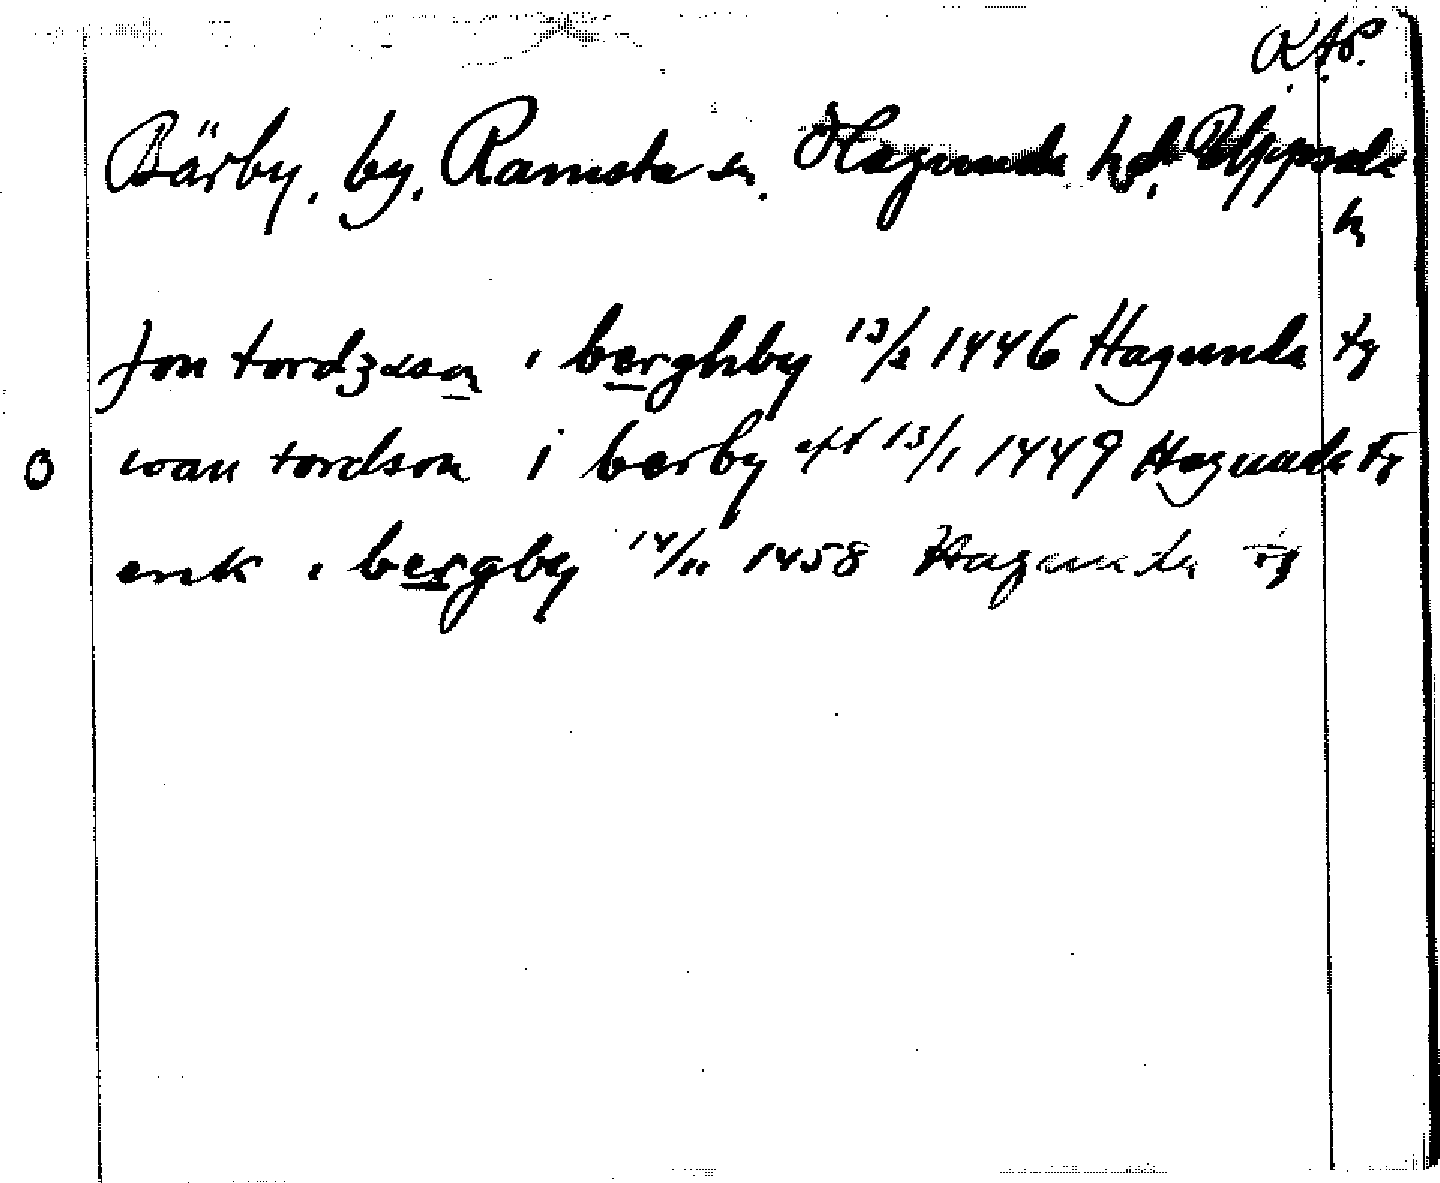 Bärby, by, Ramsta sn. Hagunda hd. Uppsala
ln
Jon tordzsson i berghby 13/2 1446 Hagunda tg
O ioan tordson i berby eft 13/1 1449 Hagunda tg
erik i bergby 14/11 1458 Hagunda tg